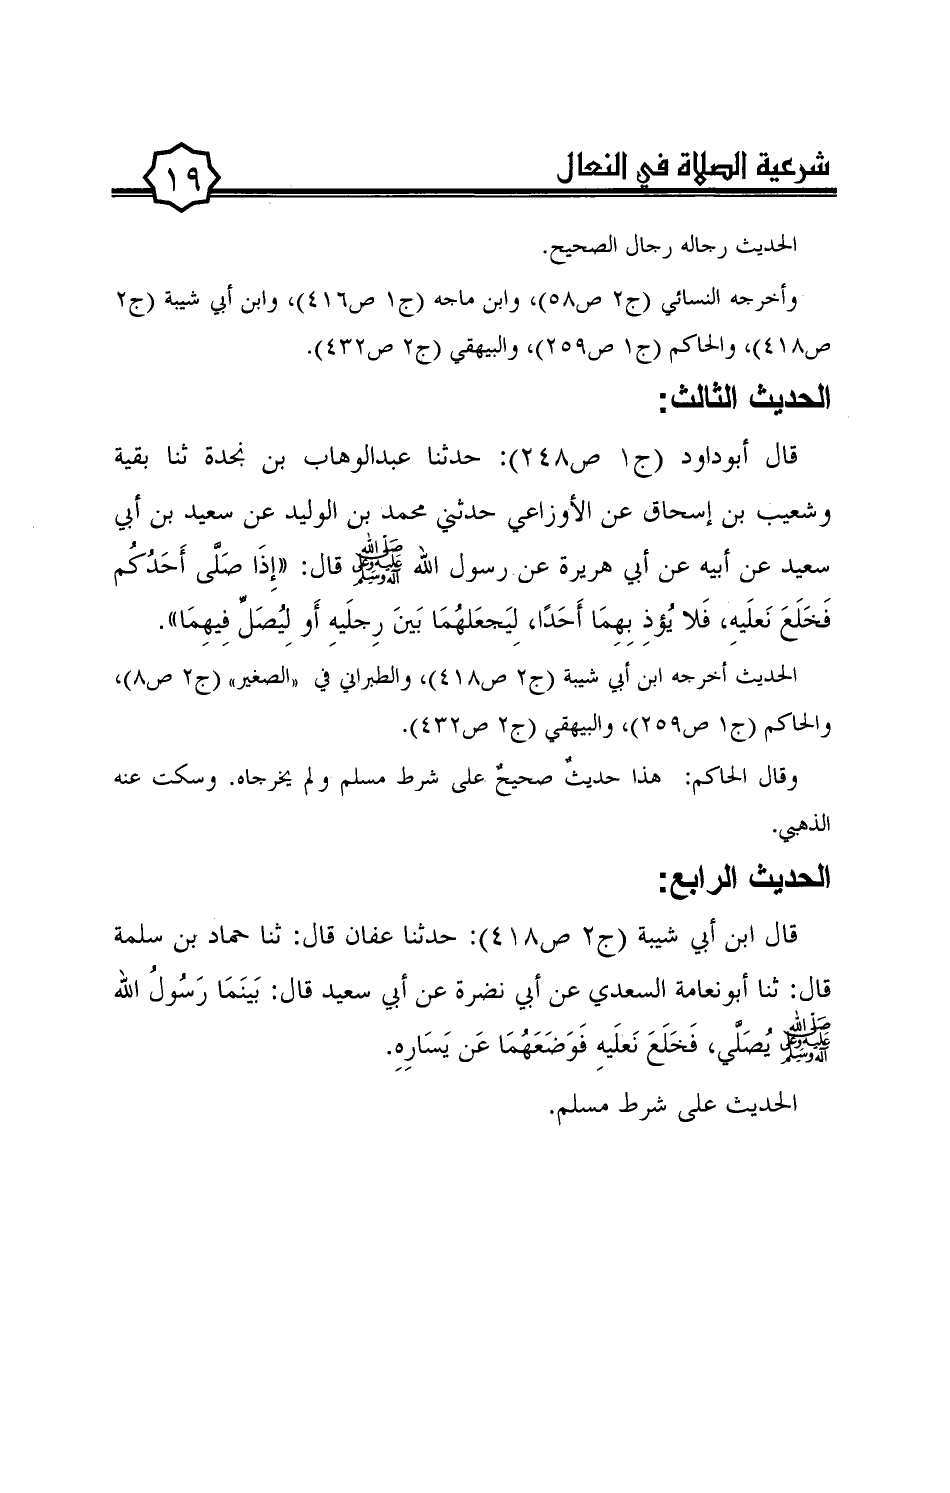 شرعية الصلاة في النعال
١٩
الحديث رجاله رجال الصحيح.
وأخرجه النسائي (ج٢ ص٥٨)، وابن ماجه (ج١ ص٤١٦)، وابن أبي شيبة (ج٢
ص٤١٨)، والحاكم (ج١ ص٢٥٩)، والبيهقي (ج٢ ص٤٣٢).
الحديث الثالث:
قال أبوداود (ج١ ص٢٤٨): حدثنا عبدالوهاب بن نجدة ثنا بقية
وشعيب بن إسحاق عن الأوزاعي حدثني محمد بن الوليد عن سعيد بن أبي
سعيد عن أبيه عن أبي هريرة عن رسول الله صلى الله عليه وعلى آله وسلم قال: «إِذَا صَلَّى أَحَدُكُم
فَخَلَعَ نَعلَيهِ، فَلا يُؤذِ بِهِمَا أَحَدًا، لِيَجعَلهُمَا بَينَ رِجلَيهِ أَو لِيُصَلِّ فِيهِمَا».
الحديث أخرجه ابن أبي شيبة (ج٢ ص٤١٨)، والطبراني في «الصغير» (ج٢ ص٨)،
والحاكم (ج١ ص٢٥٩)، والبيهقي (ج٢ ص٤٣٢).
وقال الحاكم: هذا حديثٌ صحيحٌ على شرط مسلم ولم يخرجاه. وسكت عنه
الذهبي.
الحديث الرابع:
قال ابن أبي شيبة (ج٢ ص٤١٨): حدثنا عفان قال: ثنا حماد بن سلمة
قال: ثنا أبونعامة السعدي عن أبي نضرة عن أبي سعيد قال: بَينَمَا رَسُولُ الله
صلى الله عليه وعلى آله وسلم يُصَلَّي، فَخَلَعَ نَعلَيهِ فَوَضَعَهُمَا عَن يَسَارِهِ.
الحديث على شرط مسلم.